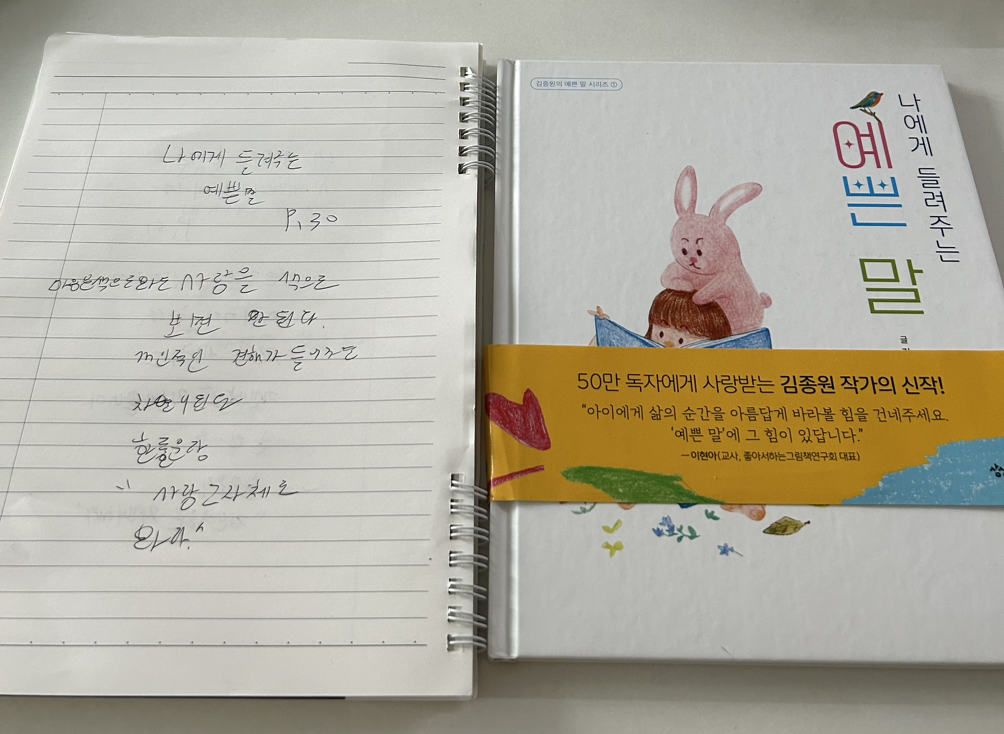 나에게 들려주는
예쁜 말
P.30
사람을 색으로
보면 안된다.
개인적인 견해가 들어가도
안된다
사람 그 자체로
봐라."
김종원의 예쁜 말 시리즈 ①
나에게 들려주는
예쁜 말
글
50만 독자에게 사랑받는 김종원 작가의 신작!
“아이에게 삶의 순간을 아름답게 바라볼 힘을 건네주세요.
‘예쁜 말’에 그 힘이 있답니다.”
—이현아(교사, 좋아서하는그림책연구회 대표)